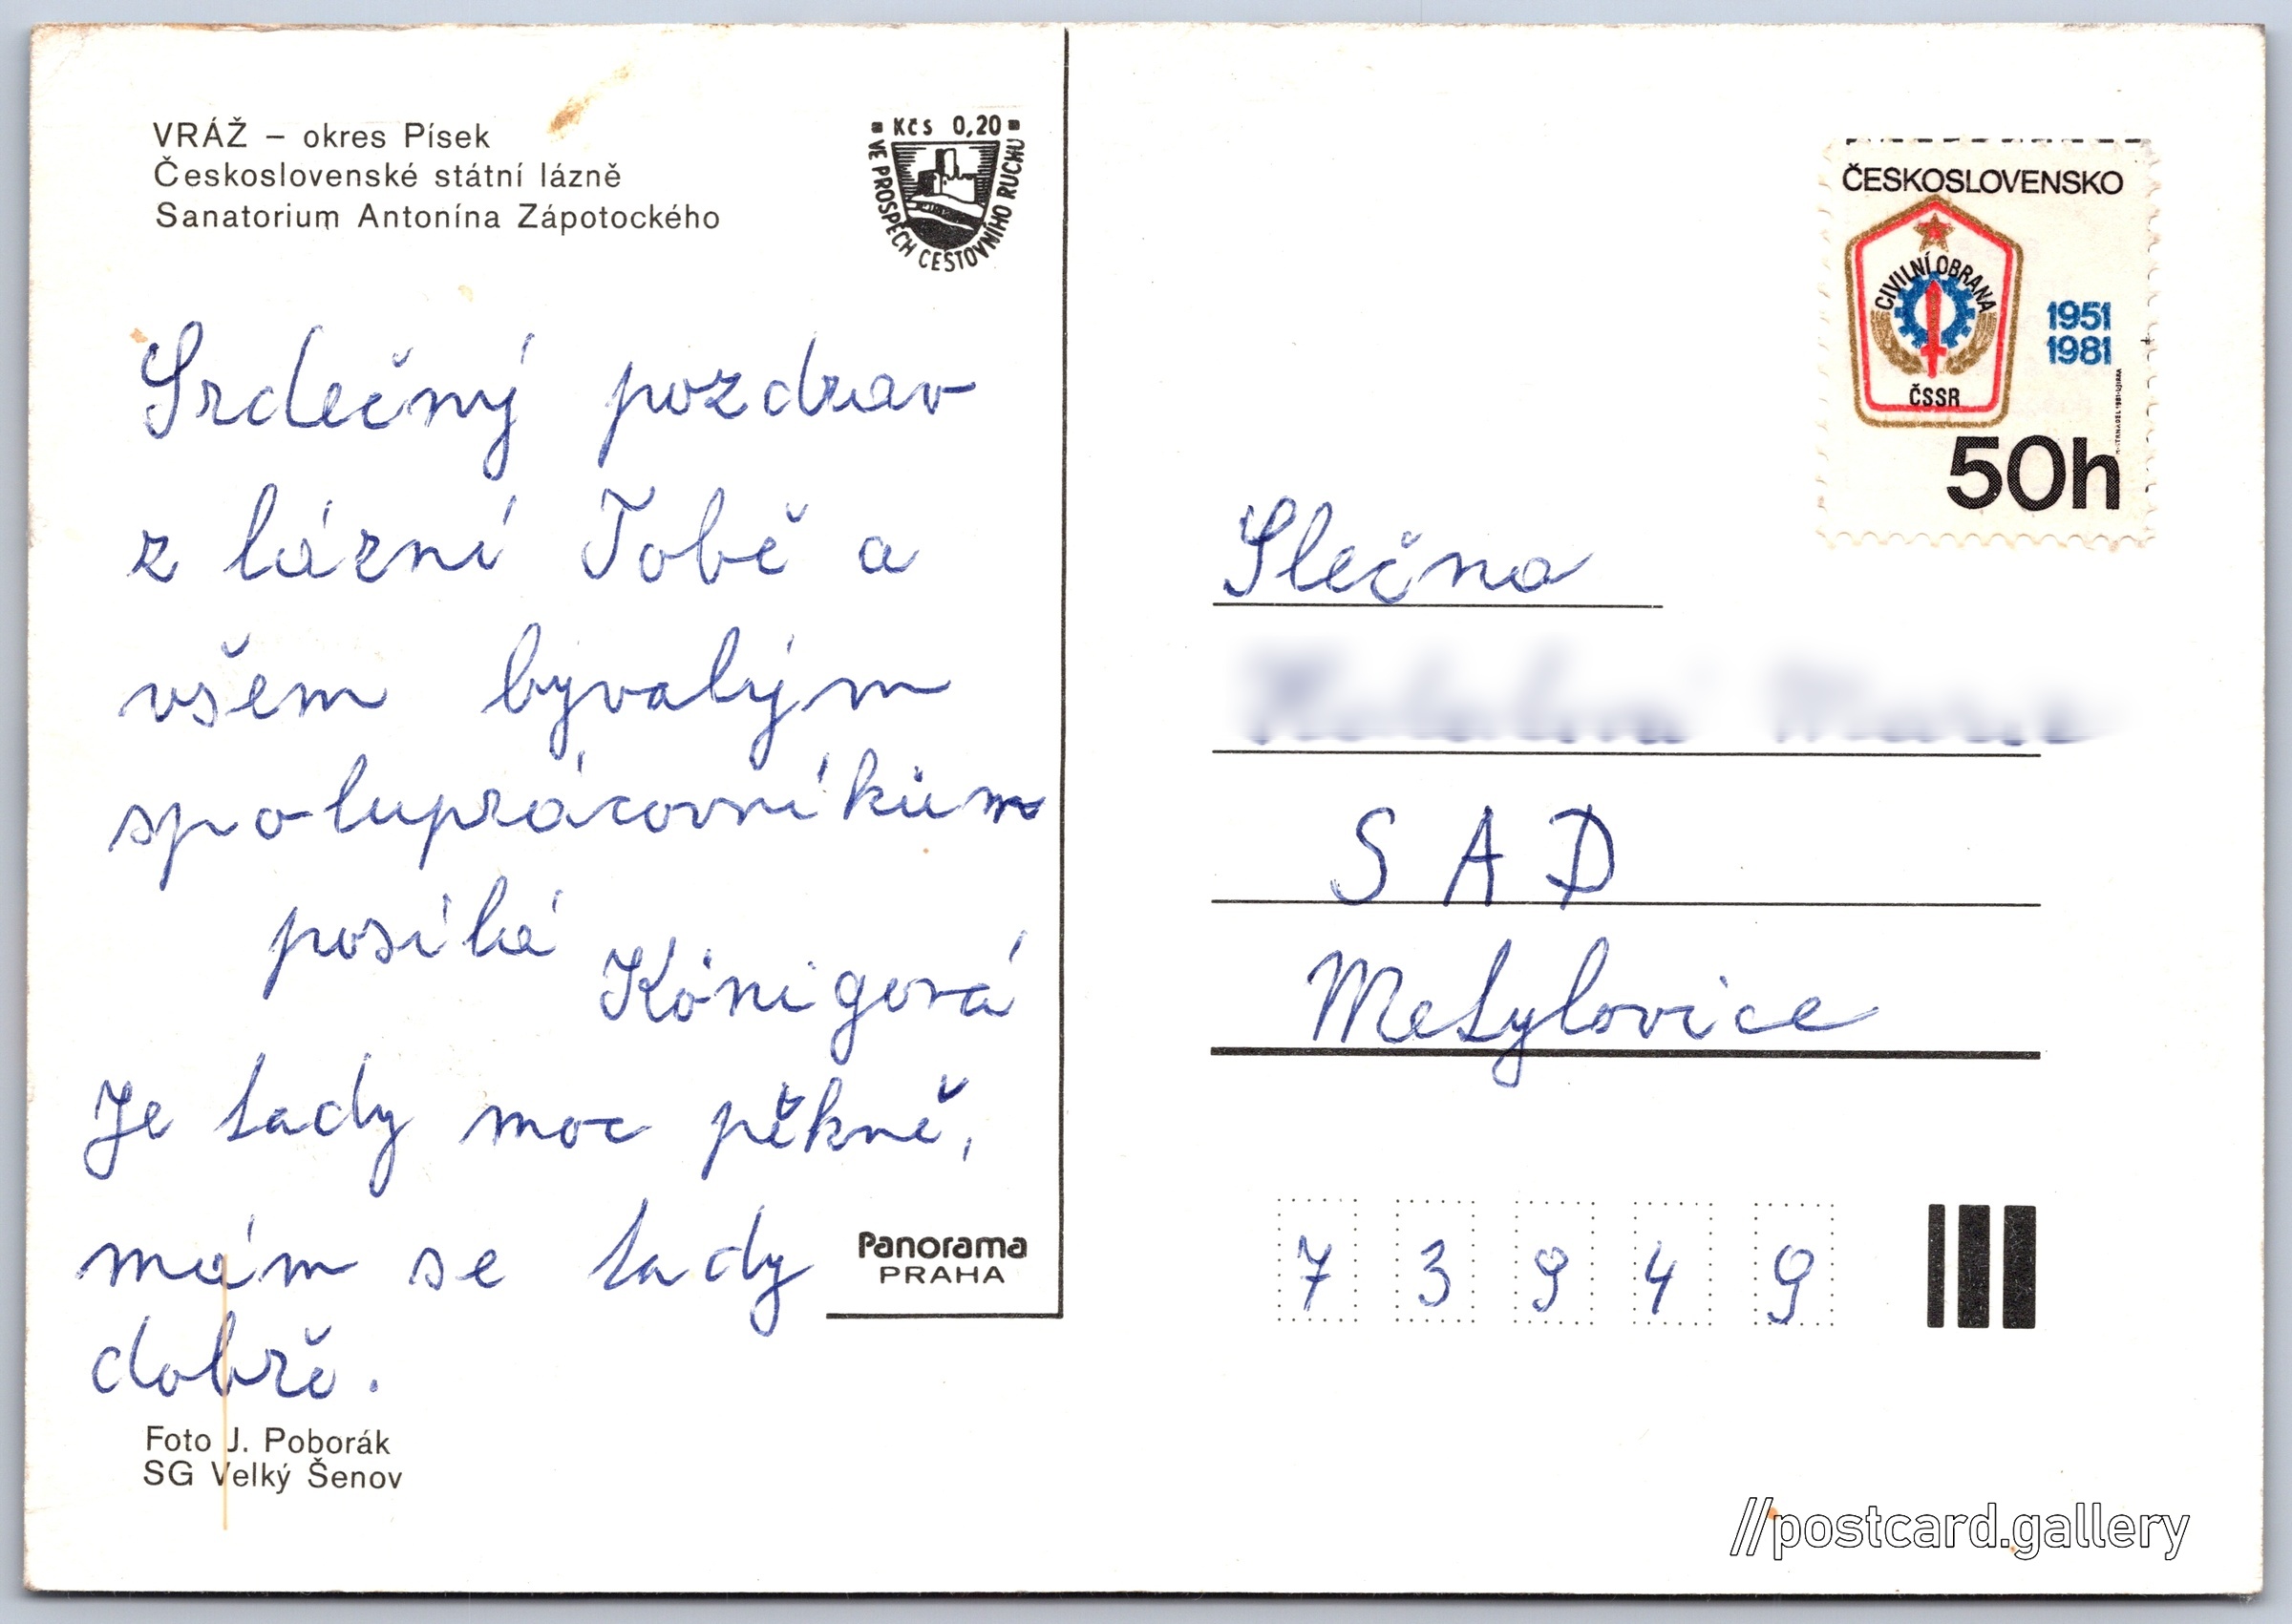 VRÁŽ – okres Písek
Československé státní lázně
Sanatorium Antonína Zápotockého
Kčs 0,20
VE PROSPĚCH CESTOVNÍHO RUCHU
Srdečný pozdrav
z lázní Tobě a
všem bývalým
spoluprácovníkům
posílá
Königová
Je tady moc pěkně,
mám se tady
dobře.
Panorama
PRAHA
Foto J. Poborák
SG Velký Šenov
ČESKOSLOVENSKO
CIVILNÍ OBRANA
1951
1981
ČSSR
50h
Slečna
SAD
Metylovice
73949
//postcard.gallery